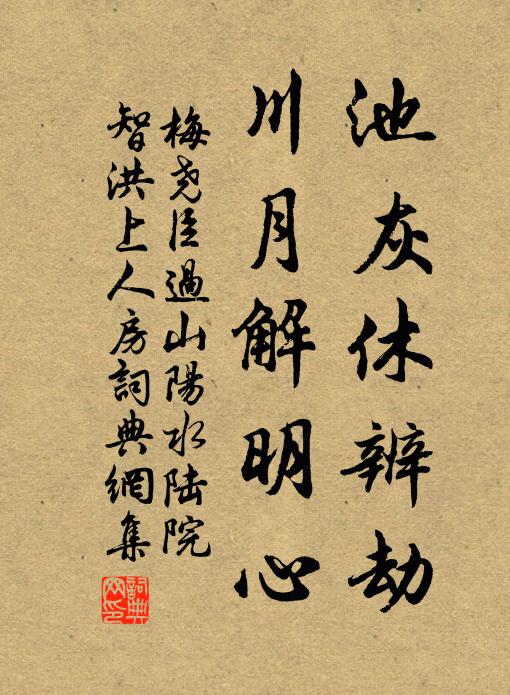 池灰休辨劫
川月解明心
梅尧臣過山陽水陆院
智洪上人房詞典網集
詞典网印